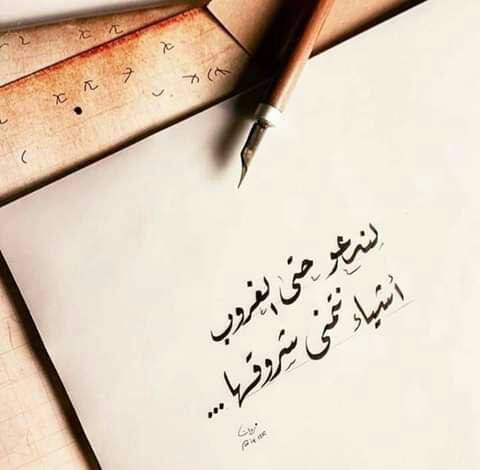 لندعو حتى الغروب
أشياء نتمنى شروقها...